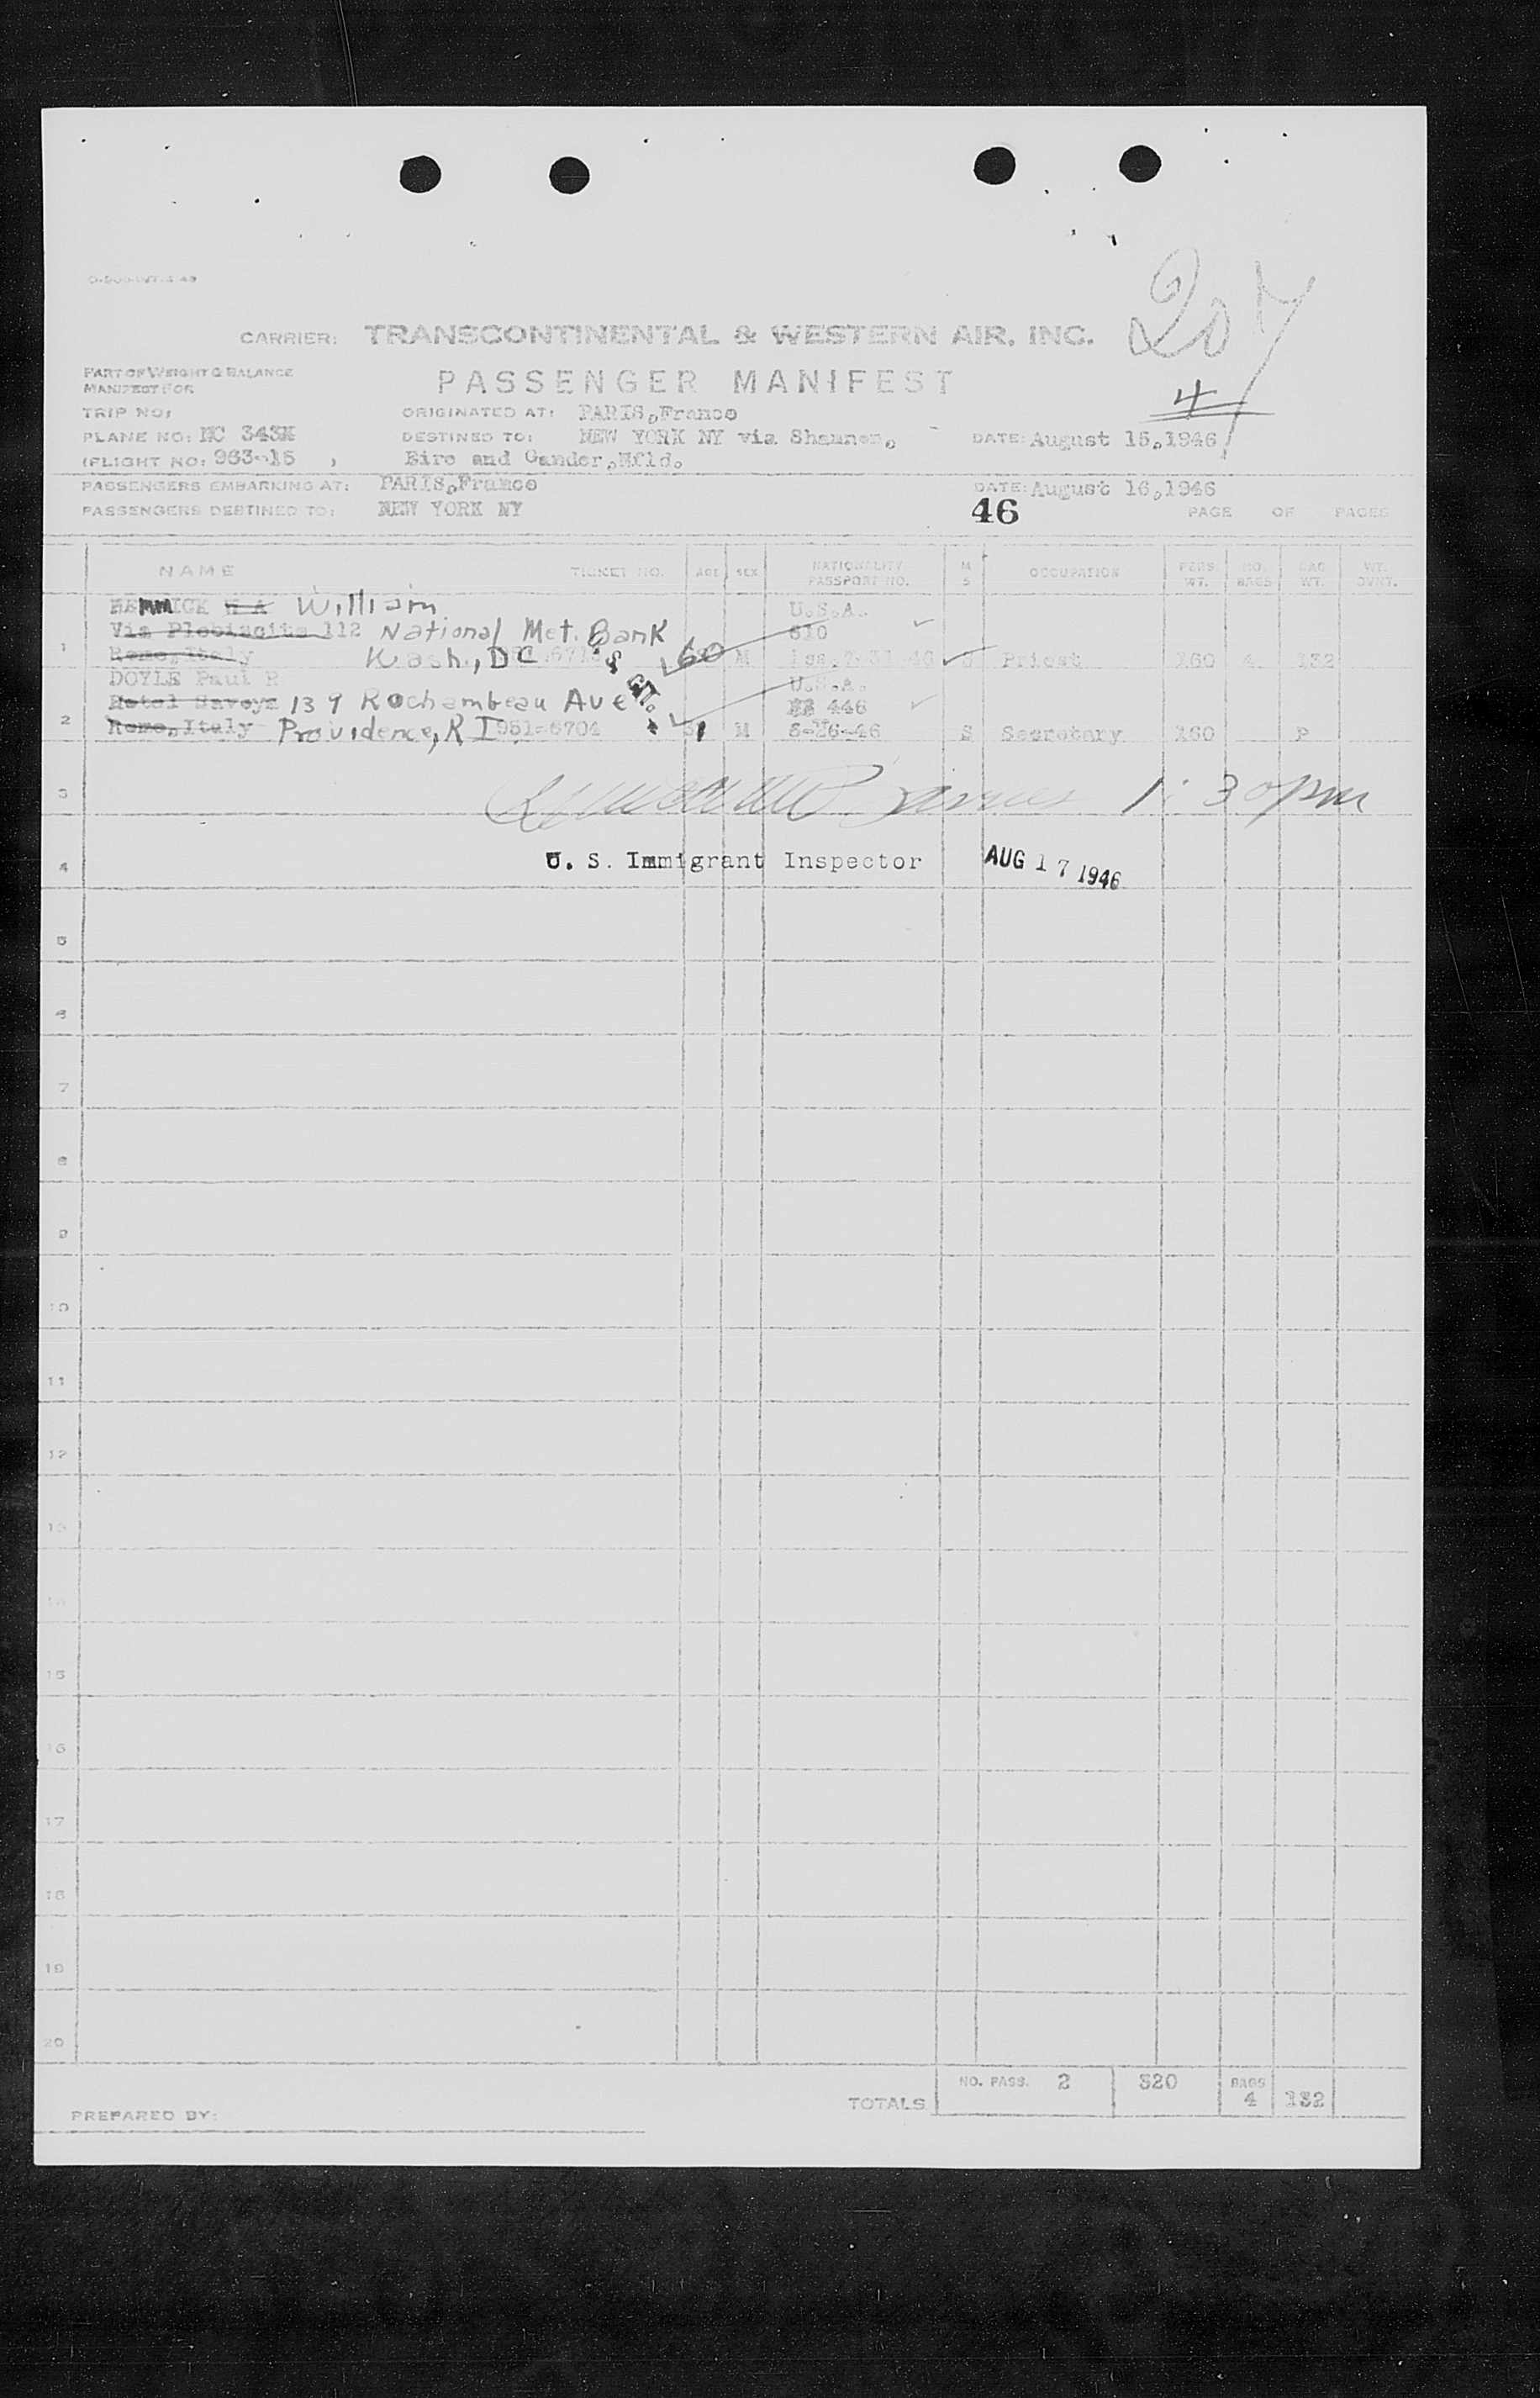 207
CARRIER: TRANSCONTINENTAL & WESTERN AIR, INC.
PART OF WEIGHT & BALANCE
MANIFEST FOR
PASSENGER MANIFEST
4
TRIP NO:
ORIGINATED AT: PARIS,France
PLANE NO: NC 343N
DESTINED TO: NEW YORK NY via Shannon,
DATE: August 15,1946
(FLIGHT NO: 963-15 )
Eire and Gander,Nfld.
PASSENGERS EMBARKING AT: PARIS,France
DATE: August 16,1946
PASSENGERS DESTINED TO: NEW YORK NY
46
PAGE OF PAGES
NAME TICKET NO. AGE SEX NATIONALITY PASSPORT NO. M S OCCUPATION PERS. WT. NO. BAGS BAG WT. WT. OVNT.
William U.S.A.
Via Plebiscito 112 National Met. Bank 610
1 Rome,Italy Wash., DC 60 M Priest 160 4 132
DOYLE Paul R U.S.A.
Hotel Savoya 139 Rochambeau Ave 446
2 Rome,Italy Providence, R I 951-6704 31 M 8-26-46 S Secretary 160 P
3 1:30pm
4 U. S. Immigrant Inspector AUG 17 1946
5
6
7
8
9
10
11
12
13
14
15
16
17
18
19
20
NO. PASS. 2 320 BAGS 4 132
TOTALS
PREPARED BY: